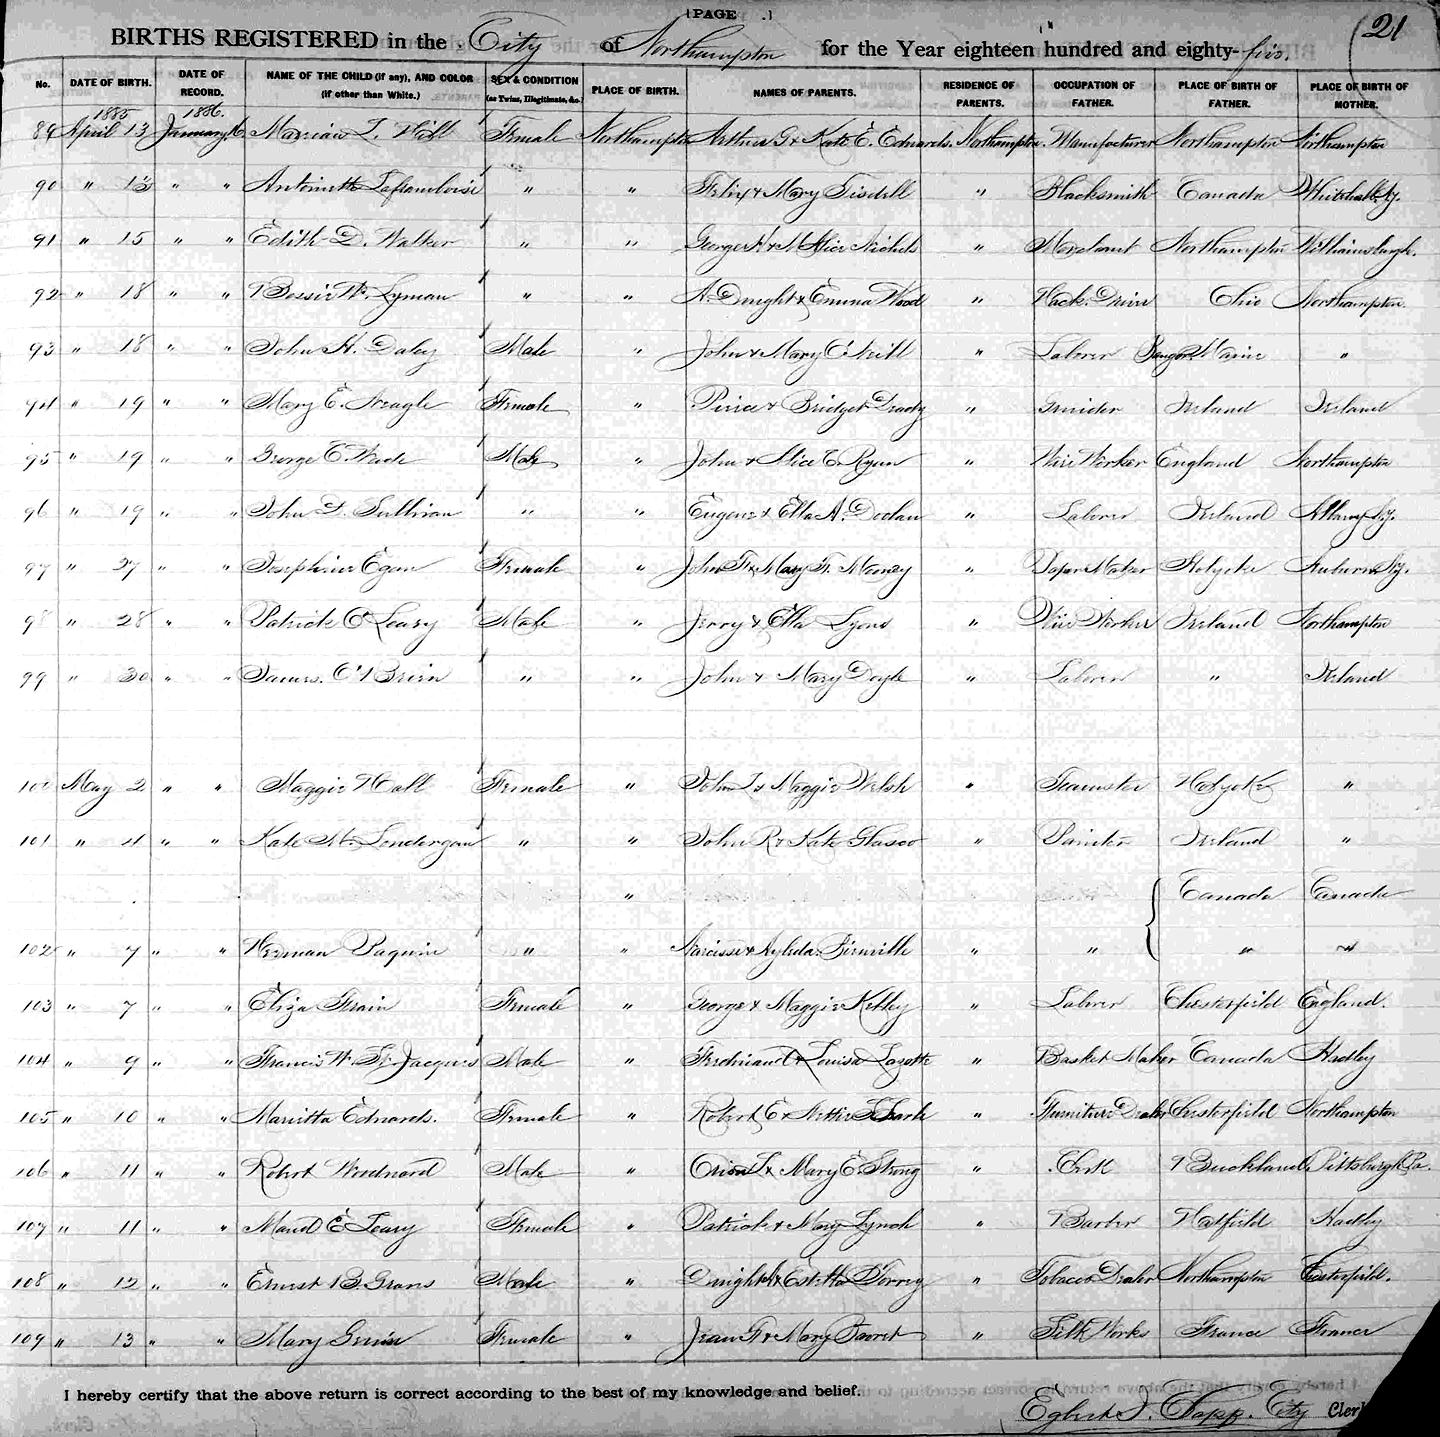 PAGE 21
BIRTHS REGISTERED in the City of Northampton for the Year eighteen hundred and eighty-five.
No. DATE OF BIRTH. DATE OF RECORD. NAME OF THE CHILD (if any), AND COLOR (if other than White.) SEX & CONDITION (as Twins, Illegitimate, &c.) PLACE OF BIRTH. NAMES OF PARENTS. RESIDENCE OF PARENTS. OCCUPATION OF FATHER. PLACE OF BIRTH OF FATHER. PLACE OF BIRTH OF MOTHER.
1885 1886.
89 April 13 January Marrian L. Hill Female Northampton Arthur G & Kate E. Edwards. Northampton. Manufacturer Northampton Northampton
90 " 13 " " Antoinette Laframboise " " Felix & Mary Tisdell " Blacksmith Canada Whitehall N.Y.
91 " 15 " " Edith D. Walker " " George H & M Alice Nichols " Merchant Northampton Williamsburgh.
92 " 18 " " Bessie W. Lyman " " A. Dwight & Emma Wood " Hack Driver Ohio Northampton
93 " 18 " " John H. Daley Male " John & Mary O'Neill " Laborer Bangor Maine "
94 " 19 " " Mary E. Neagle Female " Pierce & Bridget Drady " Grinder Ireland Ireland
95 " 19 " " George E. Wade Male " John & Alice E. Ryan " Wire Worker England Northampton
96 " 19 " " John D. Sullivan " " Eugene & Ella A. Doolan " Laborer Ireland Albany N.Y.
97 " 27 " " Josephine Egan Female " John F & Mary F. Mooney " Paper Maker Holyoke Auburn N.Y.
98 " 28 " " Patrick O'Leary Male " Jerry & Ella Lyons " Wire Worker Ireland Northampton
99 " 30 " " James. O'Brien " " John & Mary Doyle " Laborer " Ireland
100 May 2 " " Maggie Hall Female " John J & Maggie Welsh " Teamster Holyoke "
101 " 4 " " Kate M. Londergan " " John R & Kate Glasco " Painter Ireland "
" Canada Canada
102 " 7 " " Herman Paquin " " Narcisse & Aylida Bienville " " " "
103 " 7 " " Eliza Train Female " George & Maggie Kelley " Laborer Chesterfield England.
104 " 9 " " Francis W. St. Jacques Male " Ferdinand & Louisa Lazotte " Basket Maker Canada Hadley
105 " 10 " " Marietta Edwards. Female " Robert E & Nettie L. Clark " Furniture Dealer Chesterfield Northampton
106 " 11 " " Robert Woodward Male " Orion L & Mary E. Strong " Clerk Buckland Pittsburgh Pa.
107 " 11 " " Maud E Leary Female " Patrick & Mary Lynch " Barber Hatfield Hadley
108 " 12 " " Ernest B. Graves Male " Dwight & Estella Torrey " Tobacco Dealer Northampton Chesterfield.
109 " 13 " " Mary Female " Jean F & Mary " Silk Works France France
I hereby certify that the above return is correct according to the best of my knowledge and belief.
Egbert I. Clapp. City Clerk